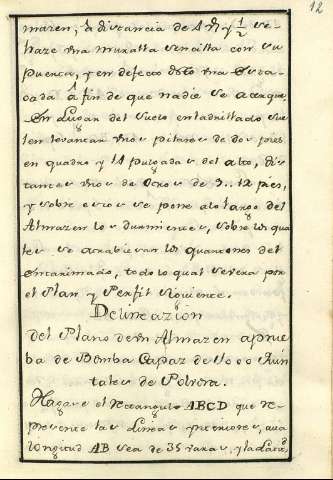 12
mazen; à distancia de 4 y 1/2 se
haze una muralla sencilla con su
puerta, y en defecto desto una Esta-
cada â fin de que nadie se acerque.
En Lugar del Suelo enladrillado sue
len levantar unos pilares de dos pies
en quadro y 18 pulgadas de alto, dis-
tantes unos de otros de 9..12 pies,
y sobre estos se pone alo largo del
Almazen los durmientes, sobre los qua
les se atrabiesan los quartones del
entarimado, todo lo qual se vera por
el Plan y Perfil siguiente.
Delineazion
del Plano de un Almazen aprue
ba de Bomba Capaz de 5000 Quin
tales de Polvora.
Hagase el rectangulo ABCD que re-
presente las Lineas ynteriores, cuia
longitud AB sea de 35 varas, y la Latid